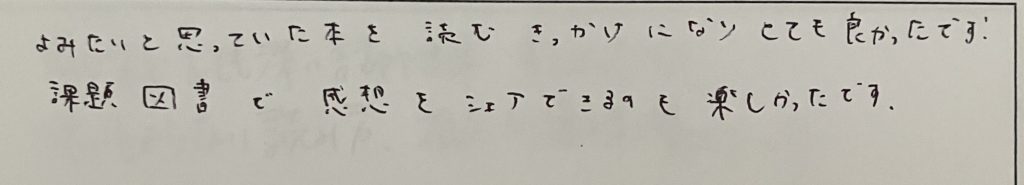 よみたいと思っていた本を読むきっかけになりとても良かったです!
課題図書で感想をシェアできるのも楽しかったです.